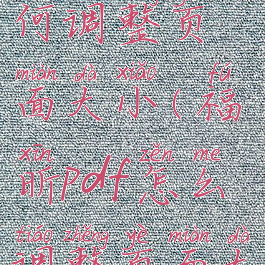 何调整页
miàn dà xiǎo fú
面大小(福
xīn zěn me
昕pdf怎么
tiáo zhěng yè miàn dà
调整页面大